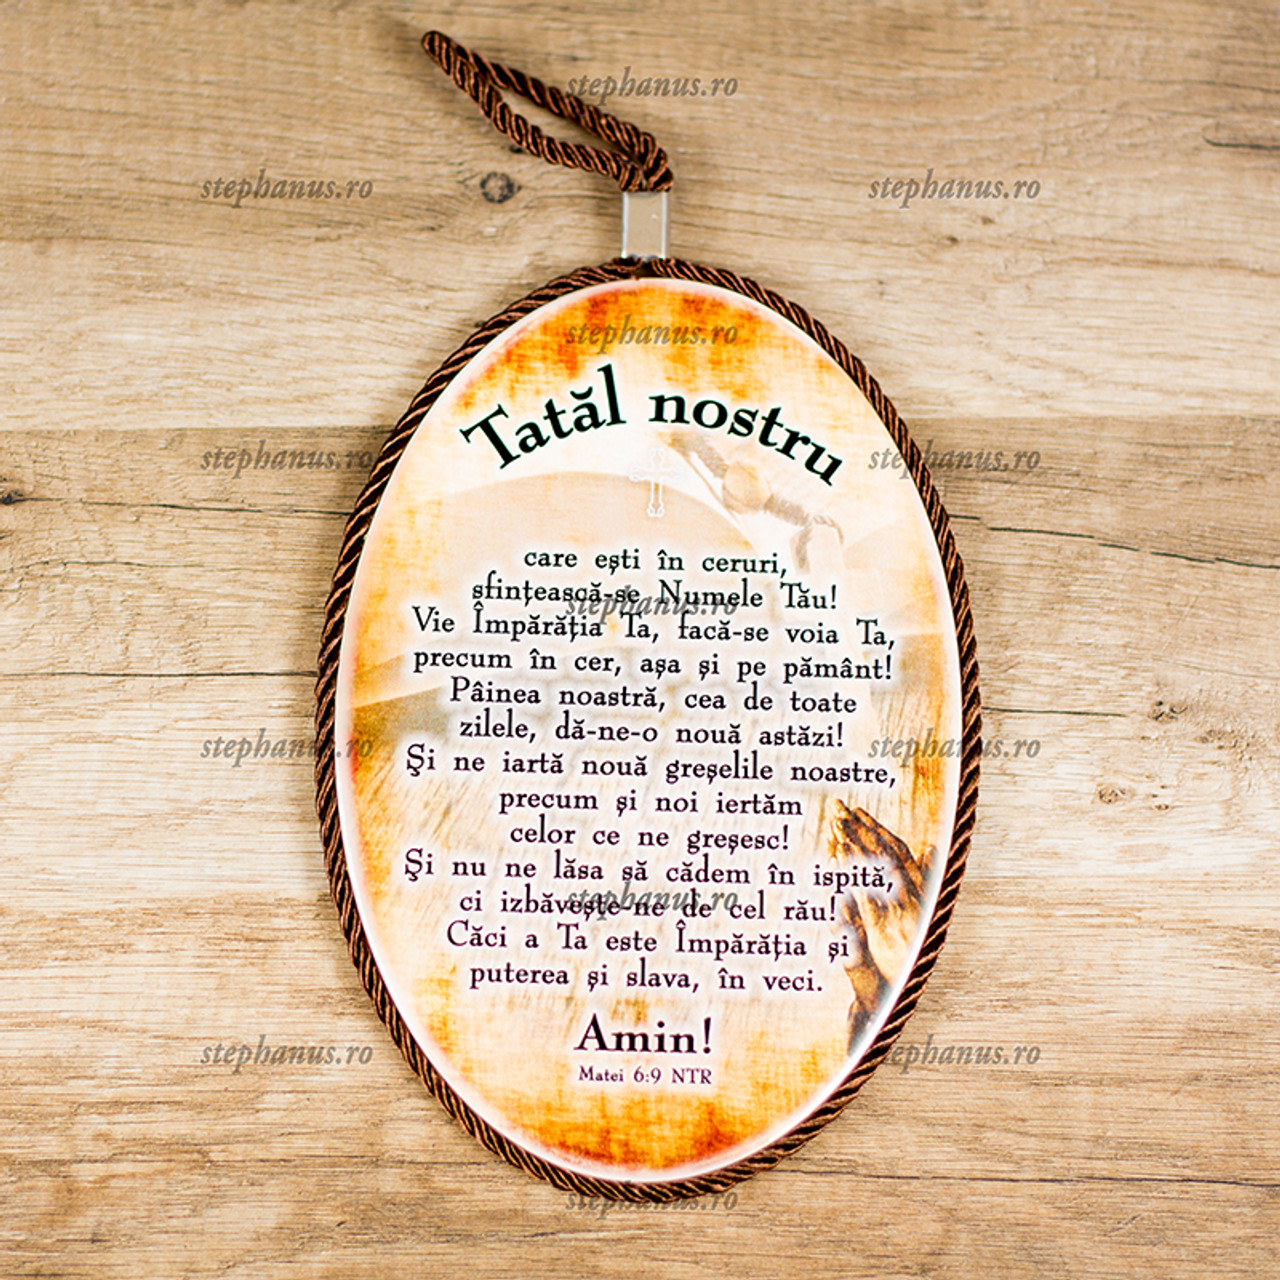 stephanus.ro
stephanus.ro
stephanus.ro
stephanus.ro
Tatăl nostru
stephanus.ro
stephanus.ro
care ești în ceruri,
sfințească-se Numele Tău!
stephanus.ro
Vie Împărăția Ta, facă-se voia Ta,
precum în cer, așa și pe pământ!
Pâinea noastră, cea de toate
zilele, dă-ne-o nouă astăzi!
stephanus.ro
stephanus.ro
Şi ne iartă nouă greșelile noastre,
precum și noi iertăm
celor ce ne greșesc!
Şi nu ne lăsa să cădem în ispită,
ci izbăvește-ne de cel rău!
stephanus.ro
Căci a Ta este Împărăția și
puterea și slava, în veci.
Amin!
stephanus.ro
stephanus.ro
Matei 6:9 NTR
stephanus.ro